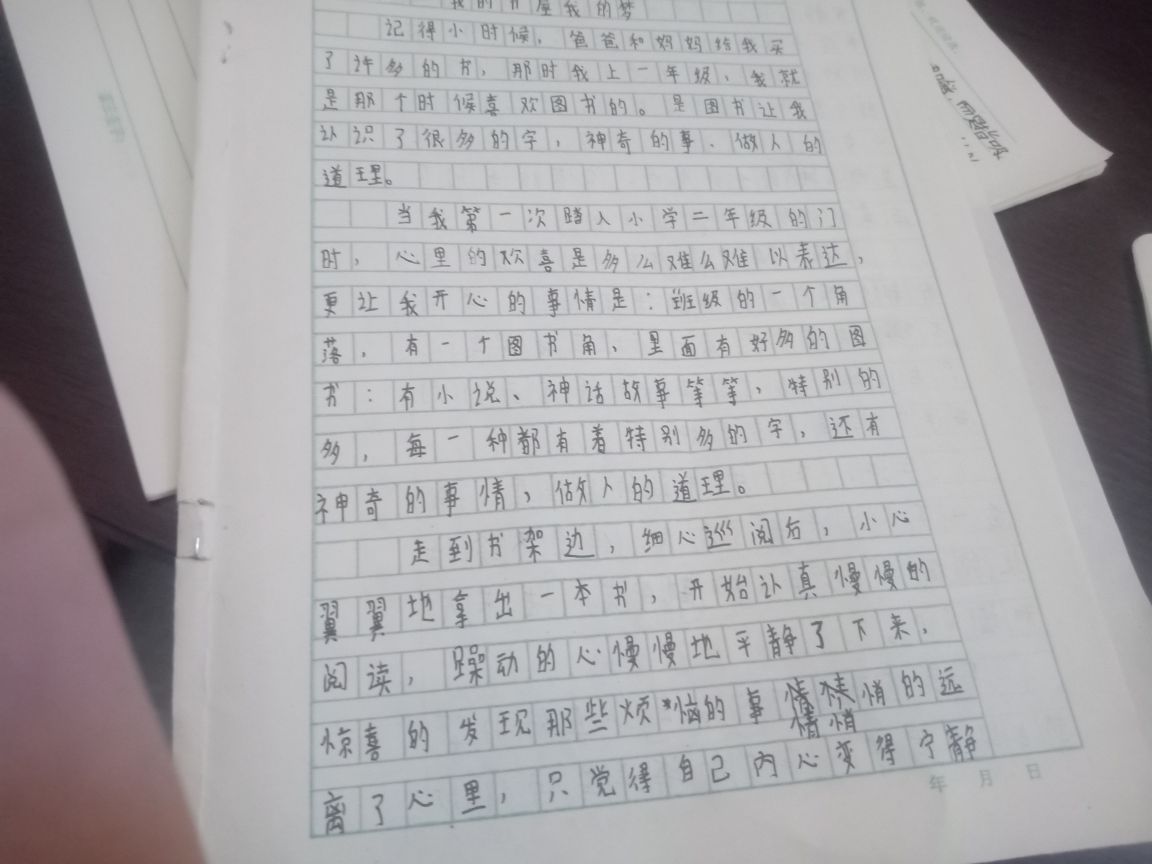 我的书屋我的梦
记得小时候，爸爸和妈妈给我买
了许多的书，那时我上一年级、我就
是那个时候喜欢图书的。是图书让我
认识了很多的字，神奇的事、做人的
道理。
当我第一次踏入小学二年级的门
时，心里的欢喜是多么难么难以表达，
更让我开心的事情是：班级的一个角
落，有一个图书角、里面有好多的图
书：有小说、神话故事等等，特别的
多，每一种都有着特别多的字，还有
神奇的事情，做人的道理。
走到书架边，细心巡阅后，小心
翼翼地拿出一本书，开始认真慢慢的
阅读，躁动的心慢慢地平静了下来，
惊喜的发现那些烦恼的事情悄悄的远
离了心里，只觉得自己内心变得宁静
年 月 日